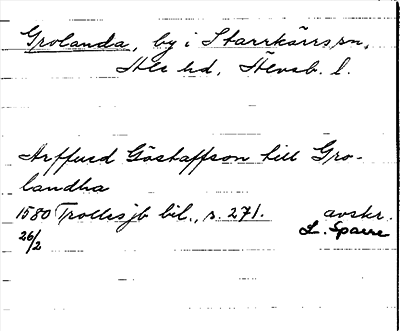 Grolanda, by i Starrkärrs sn,
Ale hd, Älvsb. l.
Arffued Göstaffson till Gro-
landha
1580 Trollesjb bil., s. 271. avskr.
26/2 L. Sparre